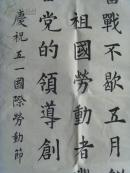 戰不歇五月創
祖國勞動者
黨的領導創
慶祝五一國際勞動節